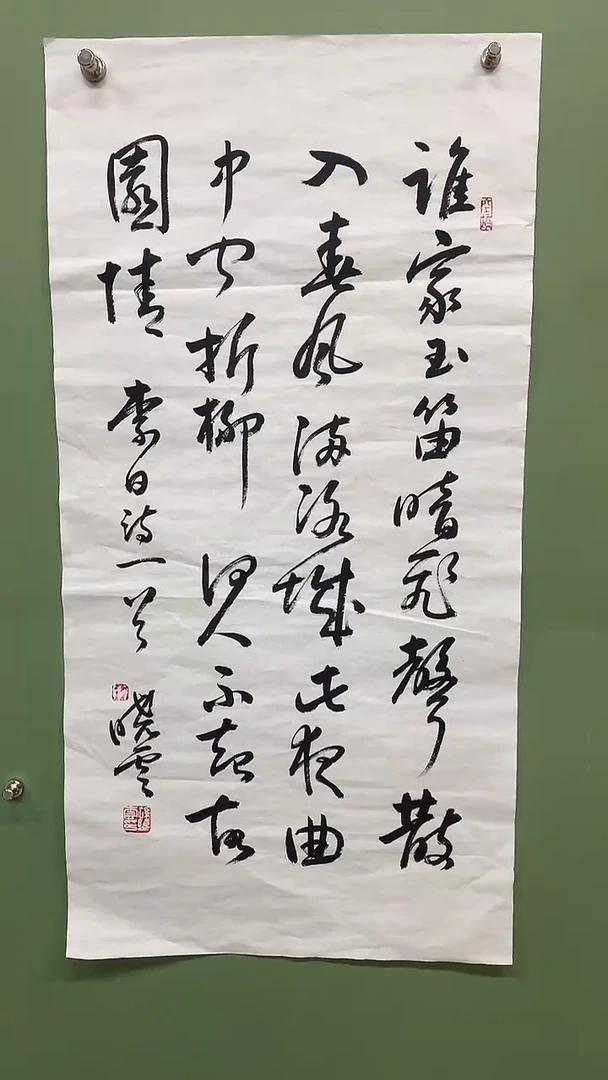 誰家玉笛暗飛聲散
入春風滿洛城此夜曲
中聞折柳何人不起故
園情 李白詩一首
曉雲